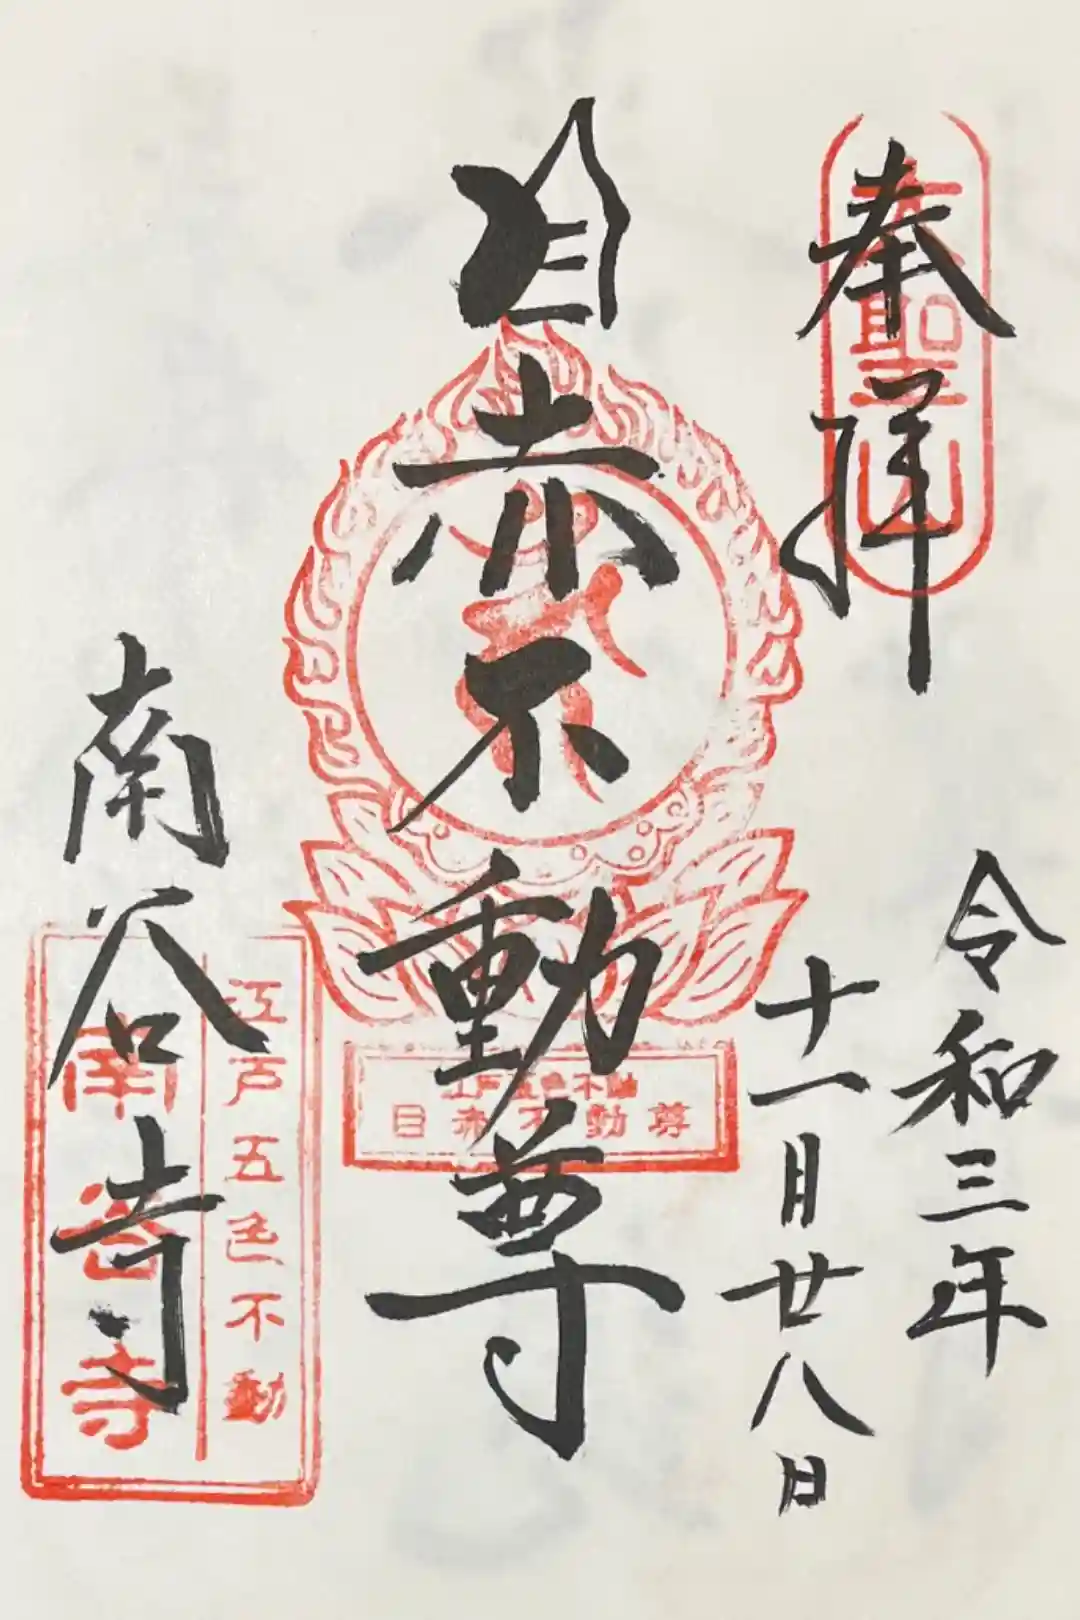 奉拝
大聖山
令和三年
十一月廿八日
目赤不動尊
江戸五色不動
目赤不動尊
南谷寺
江戸五色不動
南谷寺